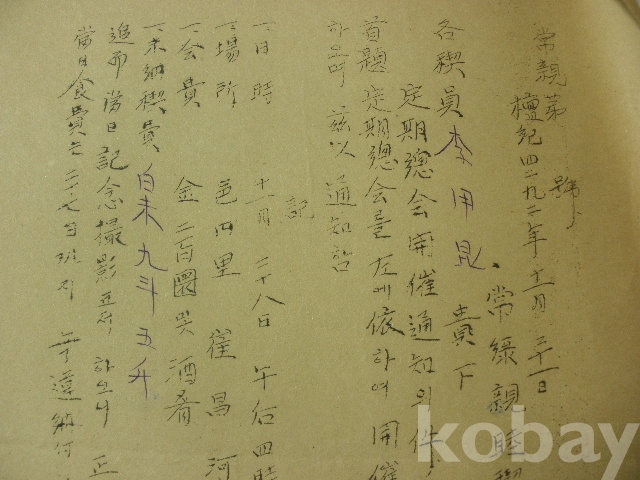 常親第 號
檀紀四二九二年十一月二十一日
常綠親睦
各禊員 李用昆 貴下
定期總会開催通知의件
首題定期總会를左에依하여開催
하오며玆以通知함
記
一日時 十一月二十八日 午后四時
一場所 邑四里 崔昌河
一会費 金二百圜 및 酒肴
一未納禊費 白米九斗五升
追而當日記念撮影도 하오니 正
當日食費는 二十七日까지
kobay